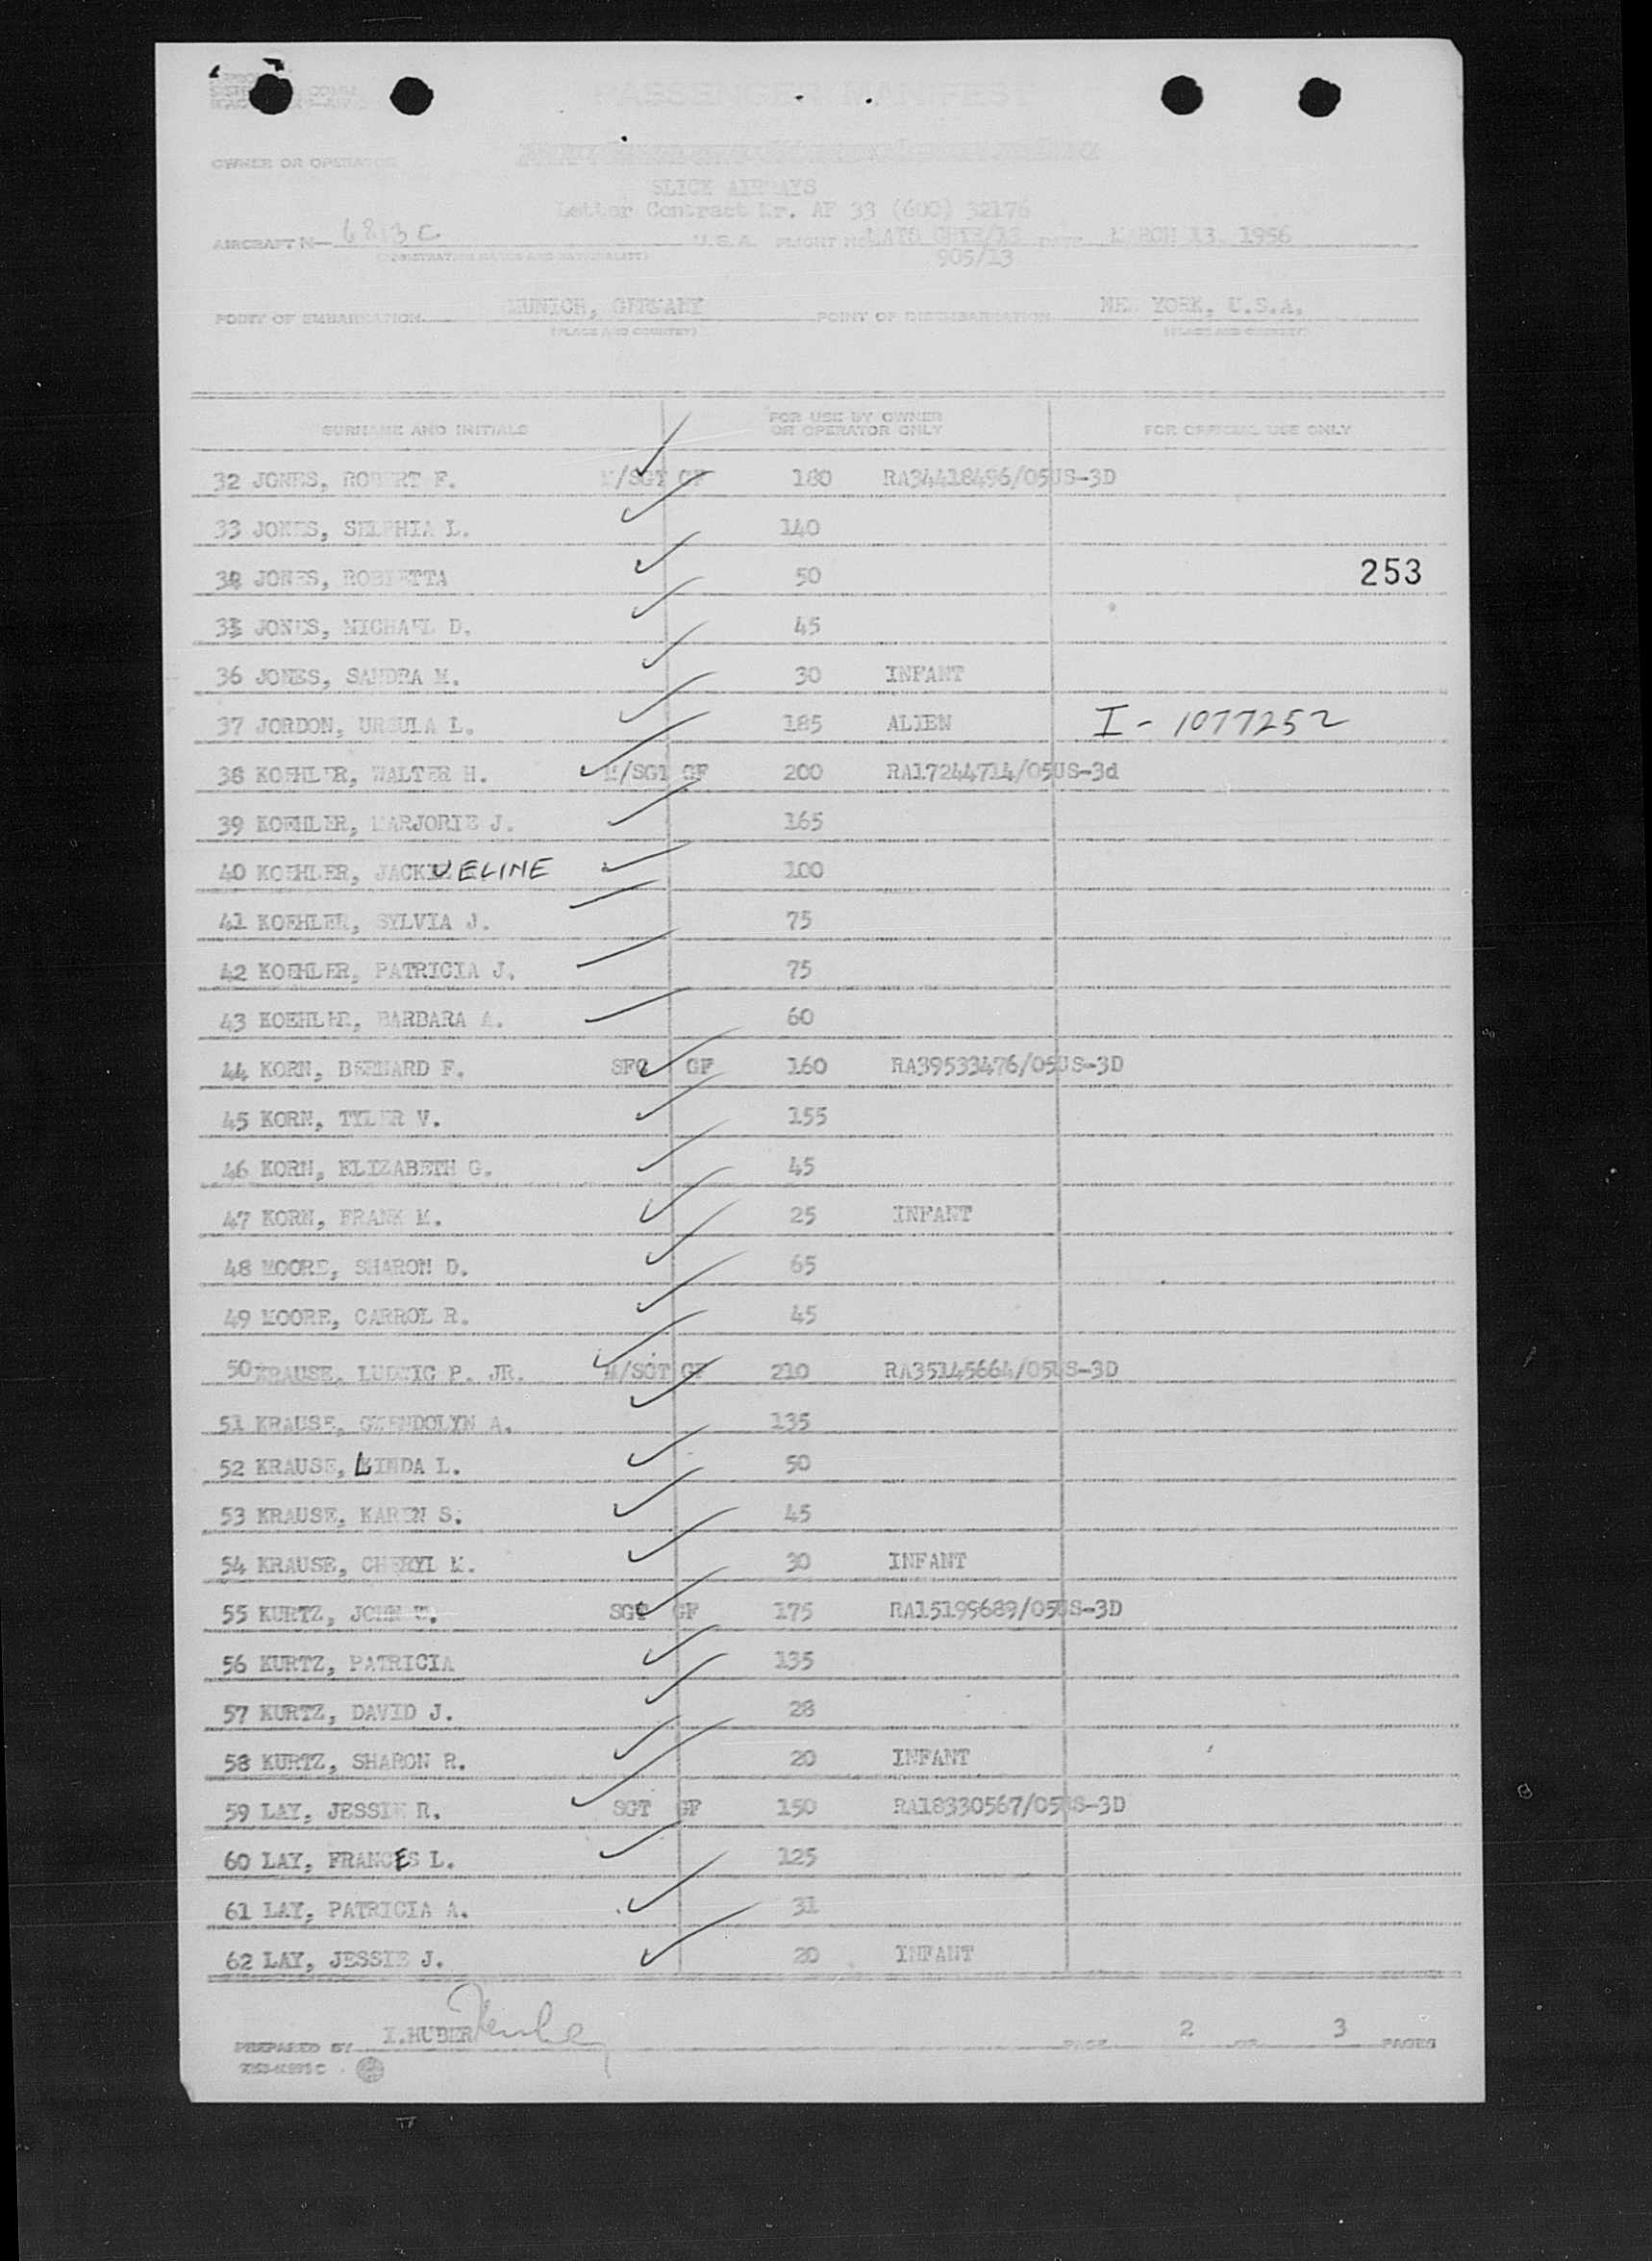 PASSENGER MANIFEST
OWNER OR OPERATOR
SLICK AIRWAYS
Letter Contract Nr. AF 33 (600) 32176
AIRCRAFT N— 6813C U.S.A. FLIGHT NO. DATE MARCH 13, 1956
(REGISTRATION MARKS AND NATIONALITY) 905/13
POINT OF EMBARKATION MUNICH, GERMANY POINT OF DISEMBARKATION NEW YORK, U.S.A.
(PLACE AND COUNTRY) (PLACE AND COUNTRY)
SURNAME AND INITIALS FOR USE BY OWNER OR OPERATOR ONLY FOR OFFICIAL USE ONLY
32 JONES, ROBERT F. M/SGT GF 180 RA34418496/05US-3D
33 JONES, SELPHIA L. 140
34 JONES, ROBIETTA 50 253
35 JONES, MICHAEL D. 45
36 JONES, SANDRA M. 30 INFANT
37 JORDON, URSULA L. 185 ALIEN I - 1077252
38 KOEHLER, WALTER H. M/SGT GF 200 RA17244714/05US-3d
39 KOEHLER, MARJORIE J. 165
40 KOEHLER, JACKUELINE 100
41 KOEHLER, SYLVIA J. 75
42 KOEHLER, PATRICIA J. 75
43 KOEHLER, BARBARA A. 60
44 KORN, BERNARD F. SFC GF 160 RA39533476/05US-3D
45 KORN, TYLER V. 155
46 KORN, ELIZABETH G. 45
47 KORN, FRANK M. 25 INFANT
48 MOORE, SHARON D. 65
49 MOORE, CARROL R. 45
50 KRAUSE, LUDWIG P. JR. M/SGT GF 210 RA35145664/05US-3D
51 KRAUSE, GWENDOLYN A. 135
52 KRAUSE, LINDA L. 50
53 KRAUSE, KAREN S. 45
54 KRAUSE, CHERYL M. 30 INFANT
55 KURTZ, JOHN W. SGT GF 175 RA15199689/05US-3D
56 KURTZ, PATRICIA 135
57 KURTZ, DAVID J. 28
58 KURTZ, SHARON R. 20 INFANT
59 LAY, JESSIE R. SGT GF 150 RA18330567/05US-3D
60 LAY, FRANCES L. 125
61 LAY, PATRICIA A. 31
62 LAY, JESSIE J. 20 INFANT
PREPARED BY I.HUBER PAGE 2 OF 3 PAGES